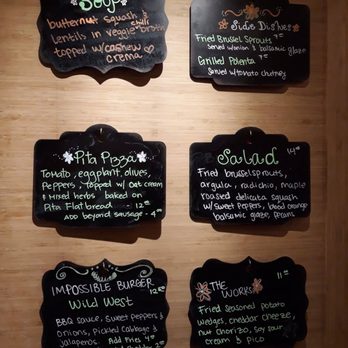 Soup
butternut squash & chili
lentils in veggie broth
topped w/cashew
crema
Side Dishes
Fried Brussel Sprouts 7.00
Served w/onion & balsamic glaze
Grilled Polenta 7.00
Served w/tomato chutney
Pita Pizza
Tomato, eggplant, olives,
Peppers, topped w/ oat cream
& mixed herbs baked on
Pita Flatbread 12.00
ADD beyond sausage - 4.00
Salad 14.00
Fried brussel sprouts,
argula, radichio, maple
roasted delicata squash
w/ sweet peppers, blood orange
balsamic glaze, pecans
IMPOSSIBLE BURGER
Wild West 12.00
BBQ sauce, sweet peppers &
onions, Pickled Cabbage &
jalapeños. Add Fries 4.00
THE
WORKS 11.00
Fried seasoned potato
wedges, cheddar cheeze,
nut chorizo, sour
cream & pico